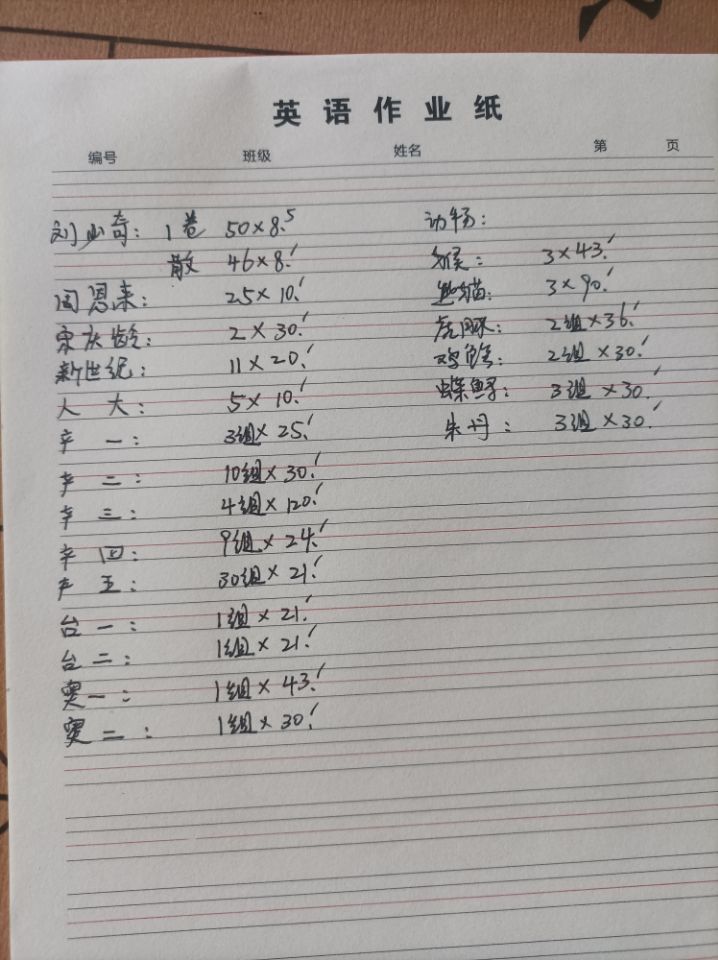 英语作业纸
编号 班级 姓名 第 页
刘少奇: 1卷 50×8.5
散 46×8.
周恩来: 25×10.
宋庆龄: 2×30.
新世纪: 11×20.
人大: 5×10.
辛一: 3组×25.
辛二: 10组×30.
辛三: 4组×120.
辛四: 9组×24.
辛五: 30组×21.
台一: 1组×21.
台二: 1组×21.
奥一: 1组×43.
奥二: 1组×30.
动物:
猴: 3×43.
熊猫: 3×90.
虎豚: 2组×36.
鸡鲑: 2组×30.
蝶鲟: 3组×30.
朱丹: 3组×30.